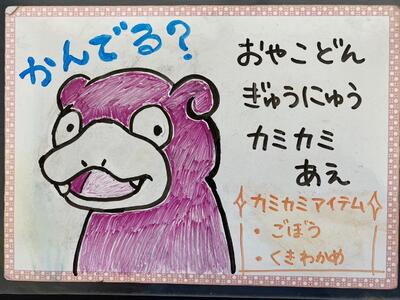 かんでる?
おやこどん
ぎゅうにゅう
カミカミ
あえ
カミカミアイテム
・ごぼう
・くきわかめ